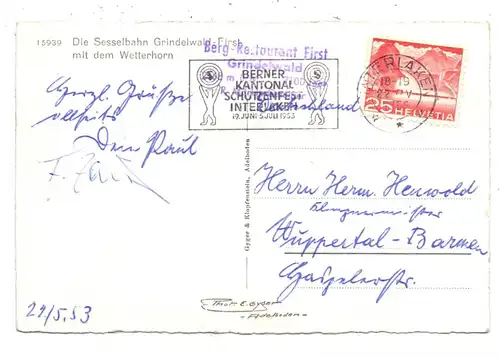 15939 Die Sesselbahn Grindelwald-First
mit dem Wetterhorn
Berg-Restaurant First
Grindelwald
BERNER
KANTONAL
SCHÜTZENFEST
INTERLAKEN
19. JUNI-5. JULI 1953
INTERLAKEN
18-19
25 HELVETIA
Herzl. Grüße
Dein Paul
Deutschland
Herrn Herm.
Klempnermeister
Wuppertal-Barmen
Gyger & Klopfenstein, Adelboden
Phot. E. Gyger
Adelboden
29/5.53